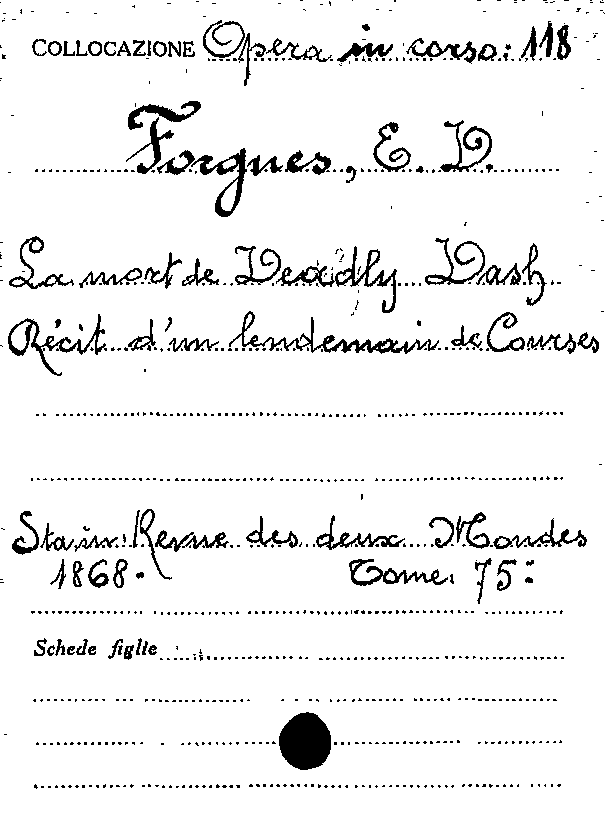 COLLOCAZIONE Opera in corso: 118
Forgues, E. D.
La mort de Deadly Dash
Récit d'un lendemain de Courses
Sta in: Revue des deux Mondes
1868. Tome. 75:
Schede figlie